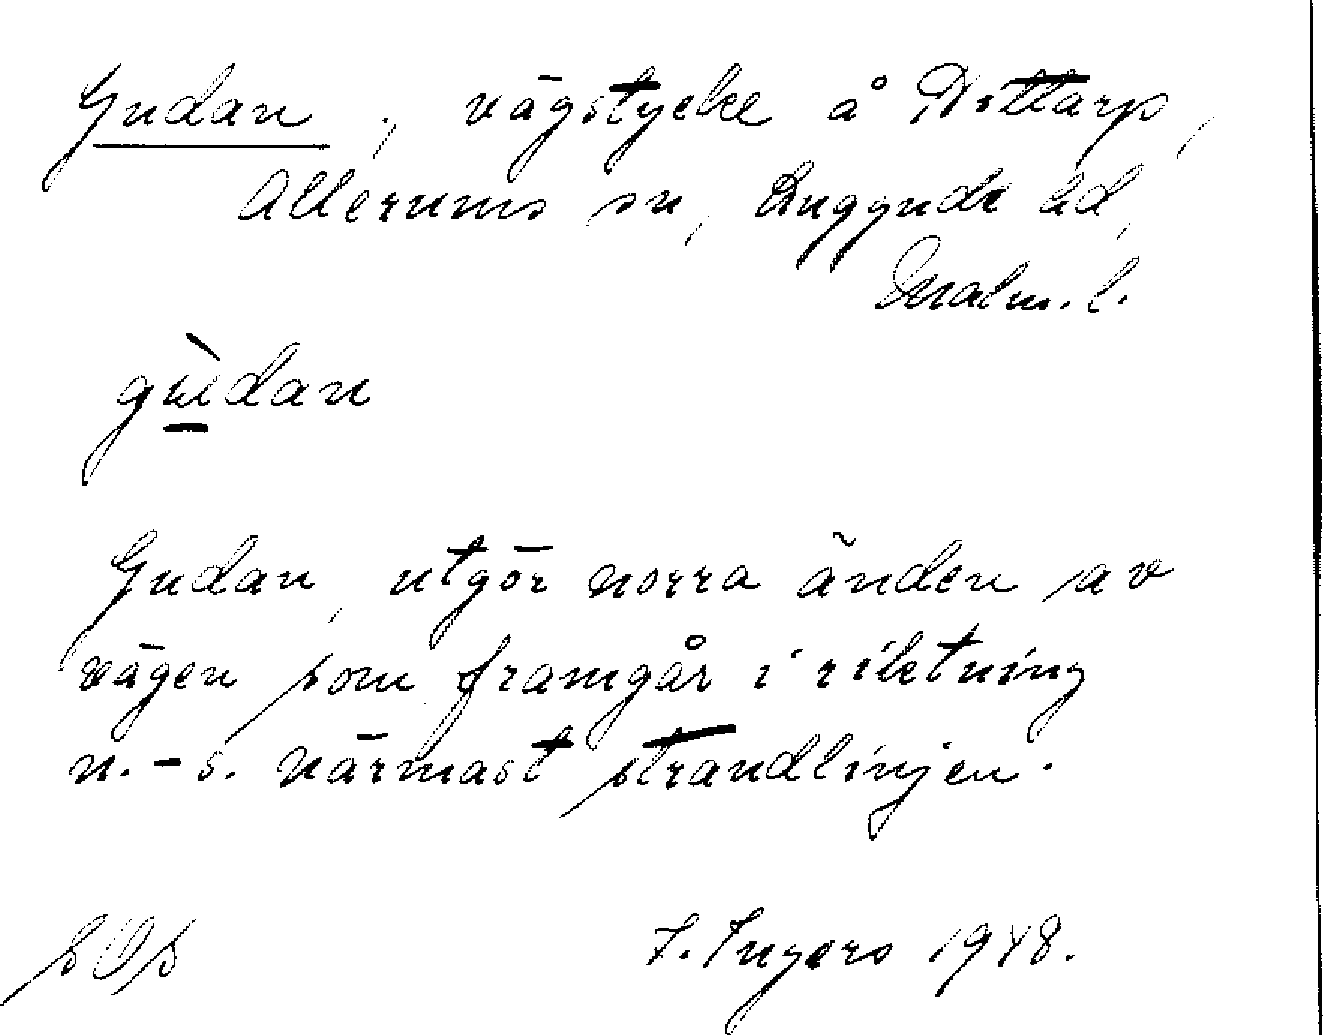 Gudan, vägstycke å Döttarp,
Allerums sn, Luggude hd,
Malm. l.
gùdan
Gudan, utgör norra änden av
vägen som framgår i riktning
n.-s. närmast strandlinjen.
I. Ingers 1948.